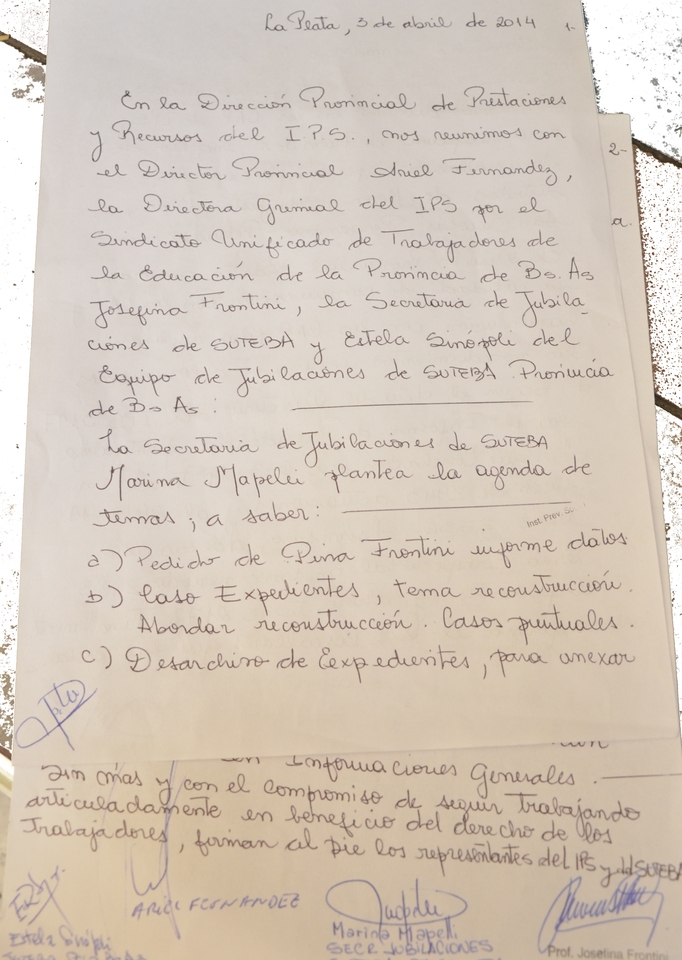 La Plata, 3 de abril de 2014 1-
En la Dirección Provincial de Prestaciones
y Recursos del I.P.S., nos reunimos con
el Director Provincial Ariel Fernandez,
la Directora Gremial del IPS por el
Sindicato Unificado de Trabajadores de
la Educación de la Provincia de Bs. As
Josefina Frontini, la Secretaria de Jubila_
ciones de SUTEBA y Estela Sinópoli del
Equipo de Jubilaciones de SUTEBA Provincia
de Bs As :
La Secretaria de Jubilaciones de SUTEBA
Marina Mapelei plantea la agenda de
temas ; a saber :
Inst. Prev. Sc
a) Pedido de Pina Frontini informe datos
b) Caso Expedientes, tema reconstrucción.
Abordar reconstrucción. Casos puntuales.
c) Desarchivo de Eexpedientes, para anexar
2-
a.
Informaciones Generales.
Sin más y con el compromiso de seguir trabajando
articuladamente en beneficio del derecho de los
Trabajadores, firman al pie los representantes del IPS y del SUTEBA
Estela Sinópoli
ARIEL FERNANDEZ
Marina Mapelli
SECR JUBILACIONES
Prof. Josefina Frontini